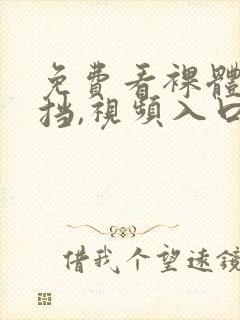 免費看裸體
挡,視頻入口
借我个望遠鏡